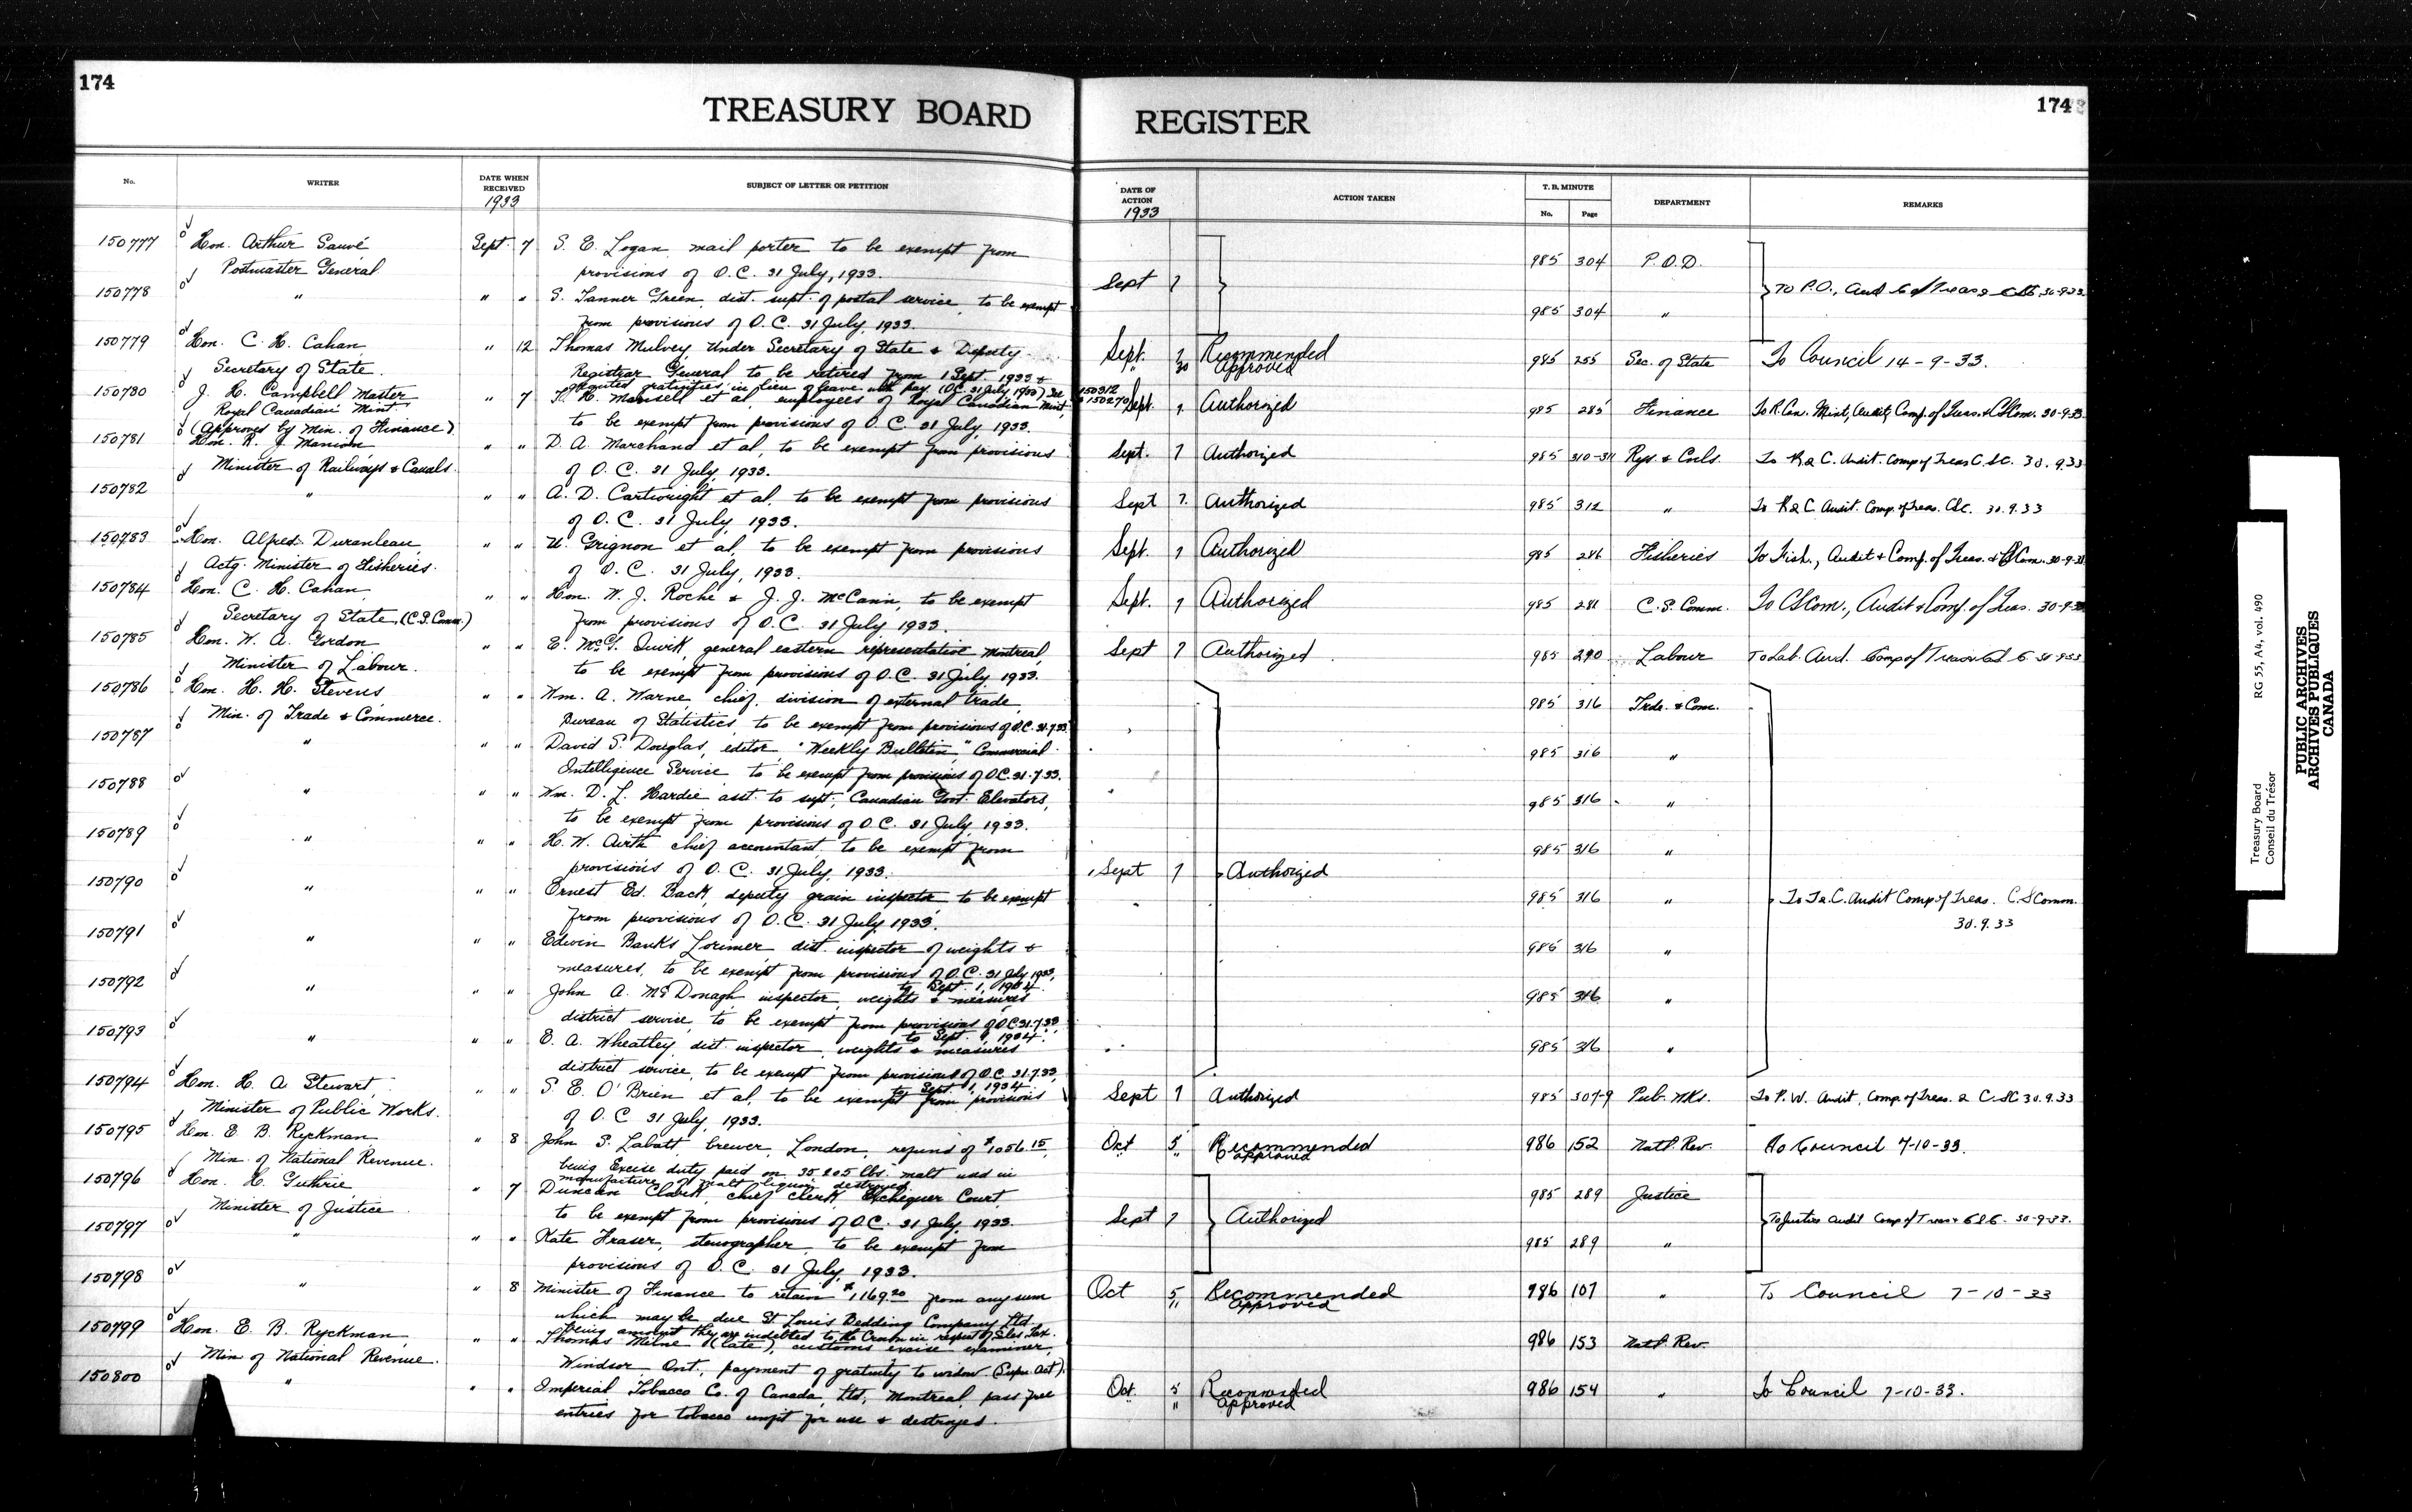 174
TREASURY BOARD
No.
WRITER
DATE WHEN RECEIVED
1933
SUBJECT OF LETTER OR PETITION
150777 Hon. Arthur Sauvé Sept. 7 S. E. Logan, mail porter to be exempt from
Postmaster General provisions of O.C. 31 July, 1933.
150778 " " " S. Tanner Green, dist. supt. of postal service, to be exempt
from provisions of O.C. 31 July, 1933.
150779 Hon. C. H. Cahan " 12 Thomas Mulvey, Under Secretary of State & Deputy
Secretary of State. Registrar General to be retired from 1 Sept. 1933 &
granted gratuities in lieu of leave with pay. (O.C. 31 July, 1933) See 150312 & 150270
150780 J. H. Campbell Master " 7 H. Mansell et al, employees of Royal Canadian Mint,
Royal Canadian Mint to be exempt from provisions of O.C. 31 July, 1933.
(Approved by Min. of Finance)
150781 Hon. R. J. Manion " " D. A. Marchand et al, to be exempt from provisions
Minister of Railways & Canals. of O.C. 31 July, 1933.
150782 " " " A. D. Cartwright et al, to be exempt from provisions
of O.C. 31 July, 1933.
150783 Hon. Alfred Duranleau " " U. Grignon et al, to be exempt from provisions
Actg. Minister of Fisheries. of O.C. 31 July, 1933.
150784 Hon. C. H. Cahan " " Hon. W. J. Roche & J. J. McCann, to be exempt
Secretary of State, (C.S. Comm.) from provisions of O.C. 31 July, 1933.
150785 Hon. W. A. Gordon " " E. McG. Quirk, general eastern representative Montreal,
Minister of Labour. to be exempt from provisions of O.C. 31 July, 1933.
150786 Hon. H. H. Stevens " " Wm. A. Warne, chief, division of external trade,
Min. of Trade & Commerce. Bureau of Statistics, to be exempt from provisions of O.C. 31.7.33
150787 " " " David S. Douglas, editor, "Weekly Bulletin," Commercial
Intelligence Service to be exempt from provisions of O.C. 31.7.33.
150788 " " " Wm. D. L. Hardie asst. to supt., Canadian Govt. Elevators,
to be exempt from provisions of O.C. 31 July, 1933.
150789 " " " H. W. Airth chief accountant to be exempt from
provisions of O.C. 31 July, 1933.
150790 " " " Ernest Ed. Back, deputy grain inspector to be exempt
from provisions of O.C. 31 July, 1933.
150791 " " " Edwin Banks Lorimer dist. inspector of weights &
measures, to be exempt from provisions of O.C. 31 July 1933,
to Sept. 1, 1934.
150792 " " " John A. McDonagh, inspector, weights & measures
district service, to be exempt from provisions of O.C. 31.7.33,
to Sept. 1, 1934.
150793 " " " E. A. Wheatley, dist. inspector, weights & measures
district service, to be exempt from provisions of O.C. 31.7.33,
to Sept. 1, 1934
150794 Hon. H. A. Stewart, " " S. E. O'Brien et al, to be exempt from provisions
Minister of Public Works. of O.C. 31 July, 1933.
150795 Hon. E. B. Ryckman, " 8 John S. Labatt, brewer, London, refund of $1056.15,
Min. of National Revenue. being Excise duty paid on 35205 lbs. malt used in
manufacture of malt liquor destroyed.
150796 Hon. H. Guthrie " 7 Duncan Clark, chief clerk, Exchequer Court,
Minister of Justice to be exempt from provisions of O.C. 31 July, 1933.
150797 " " " Kate Fraser, stenographer, to be exempt from
provisions of O.C. 31 July, 1933.
150798 " " 8 Minister of Finance to retain $1169.20 from any sum
which may be due St Louis Bedding Company Ltd.
being amount they are indebted to the Crown in respect of Sales Tax.
150799 Hon. E. B. Ryckman, " " Thomas Milne (late), customs excise examiner,
Min of National Revenue. Windsor, Ont., payment of gratuity to widow (Supn Act).
150800 " " " Imperial Tobacco Co. of Canada, Ltd, Montreal, pass free
entries for tobacco unfit for use & destroyed.
REGISTER
174
DATE OF ACTION
1933
ACTION TAKEN
T. B. MINUTE
No.
Page
DEPARTMENT
REMARKS
985 304 P.O.D.
Sept 7 To P.O., Aud. C of Treas & CSC 30-9-33
985 304 "
Sept. 7 Recommended 985 255 Sec. of State To Council 14-9-33.
" 30 Approved
Sept. 7 Authorized 985 285 Finance To R. Can. Mint, Audit, Comp. of Treas. & CSCom. 30-9-33
Sept. 7 Authorized 985 310-311 Rys. & Cnls. To R & C. Audit. Comp of Treas C.S.C. 30.9.33
Sept 7. Authorized 985 312 " To R & C. Audit. Comp. of Treas. 30.9.33
Sept. 7 Authorized 985 286 Fisheries To Fish., Audit & Comp. of Treas. & CSCom. 30-9-33
Sept. 7 Authorized 985 281 C.S. Comm. To CSCom., Audit & Comp. of Treas. 30-9-33
Sept 7 Authorized 985 290 Labour To Lab. Aud. Comp of Treas 30-9-33
985 316 Trde. & Com.
985 316 "
985 316 "
985 316 "
Sept 7 Authorized
985 316 " To T & C. Audit Comp of Treas. C.S Comm.
30.9.33
985 316 "
985 316 "
985 316 "
Sept 7 Authorized 985 307-9 Pub. Wks. To P.W. Audit, Comp. of Treas. & C.SC 30.9.33
Oct 5 Recommended 986 152 Natl. Rev. To Council 7-10-33.
" " approved
985 289 Justice
Sept 7 Authorized To Justice Audit Comp of Treas & CSC. 30-9-33.
985 289 "
Oct 5 Recommended 986 107 " To Council 7-10-33
" approved
986 153 Natl. Rev.
Oct. 5 Recommended 986 154 " To Council 7-10-33.
" " approved
Treasury Board
Conseil du Trésor
RG 55, A4, vol. 490
PUBLIC ARCHIVES
ARCHIVES PUBLIQUES
CANADA